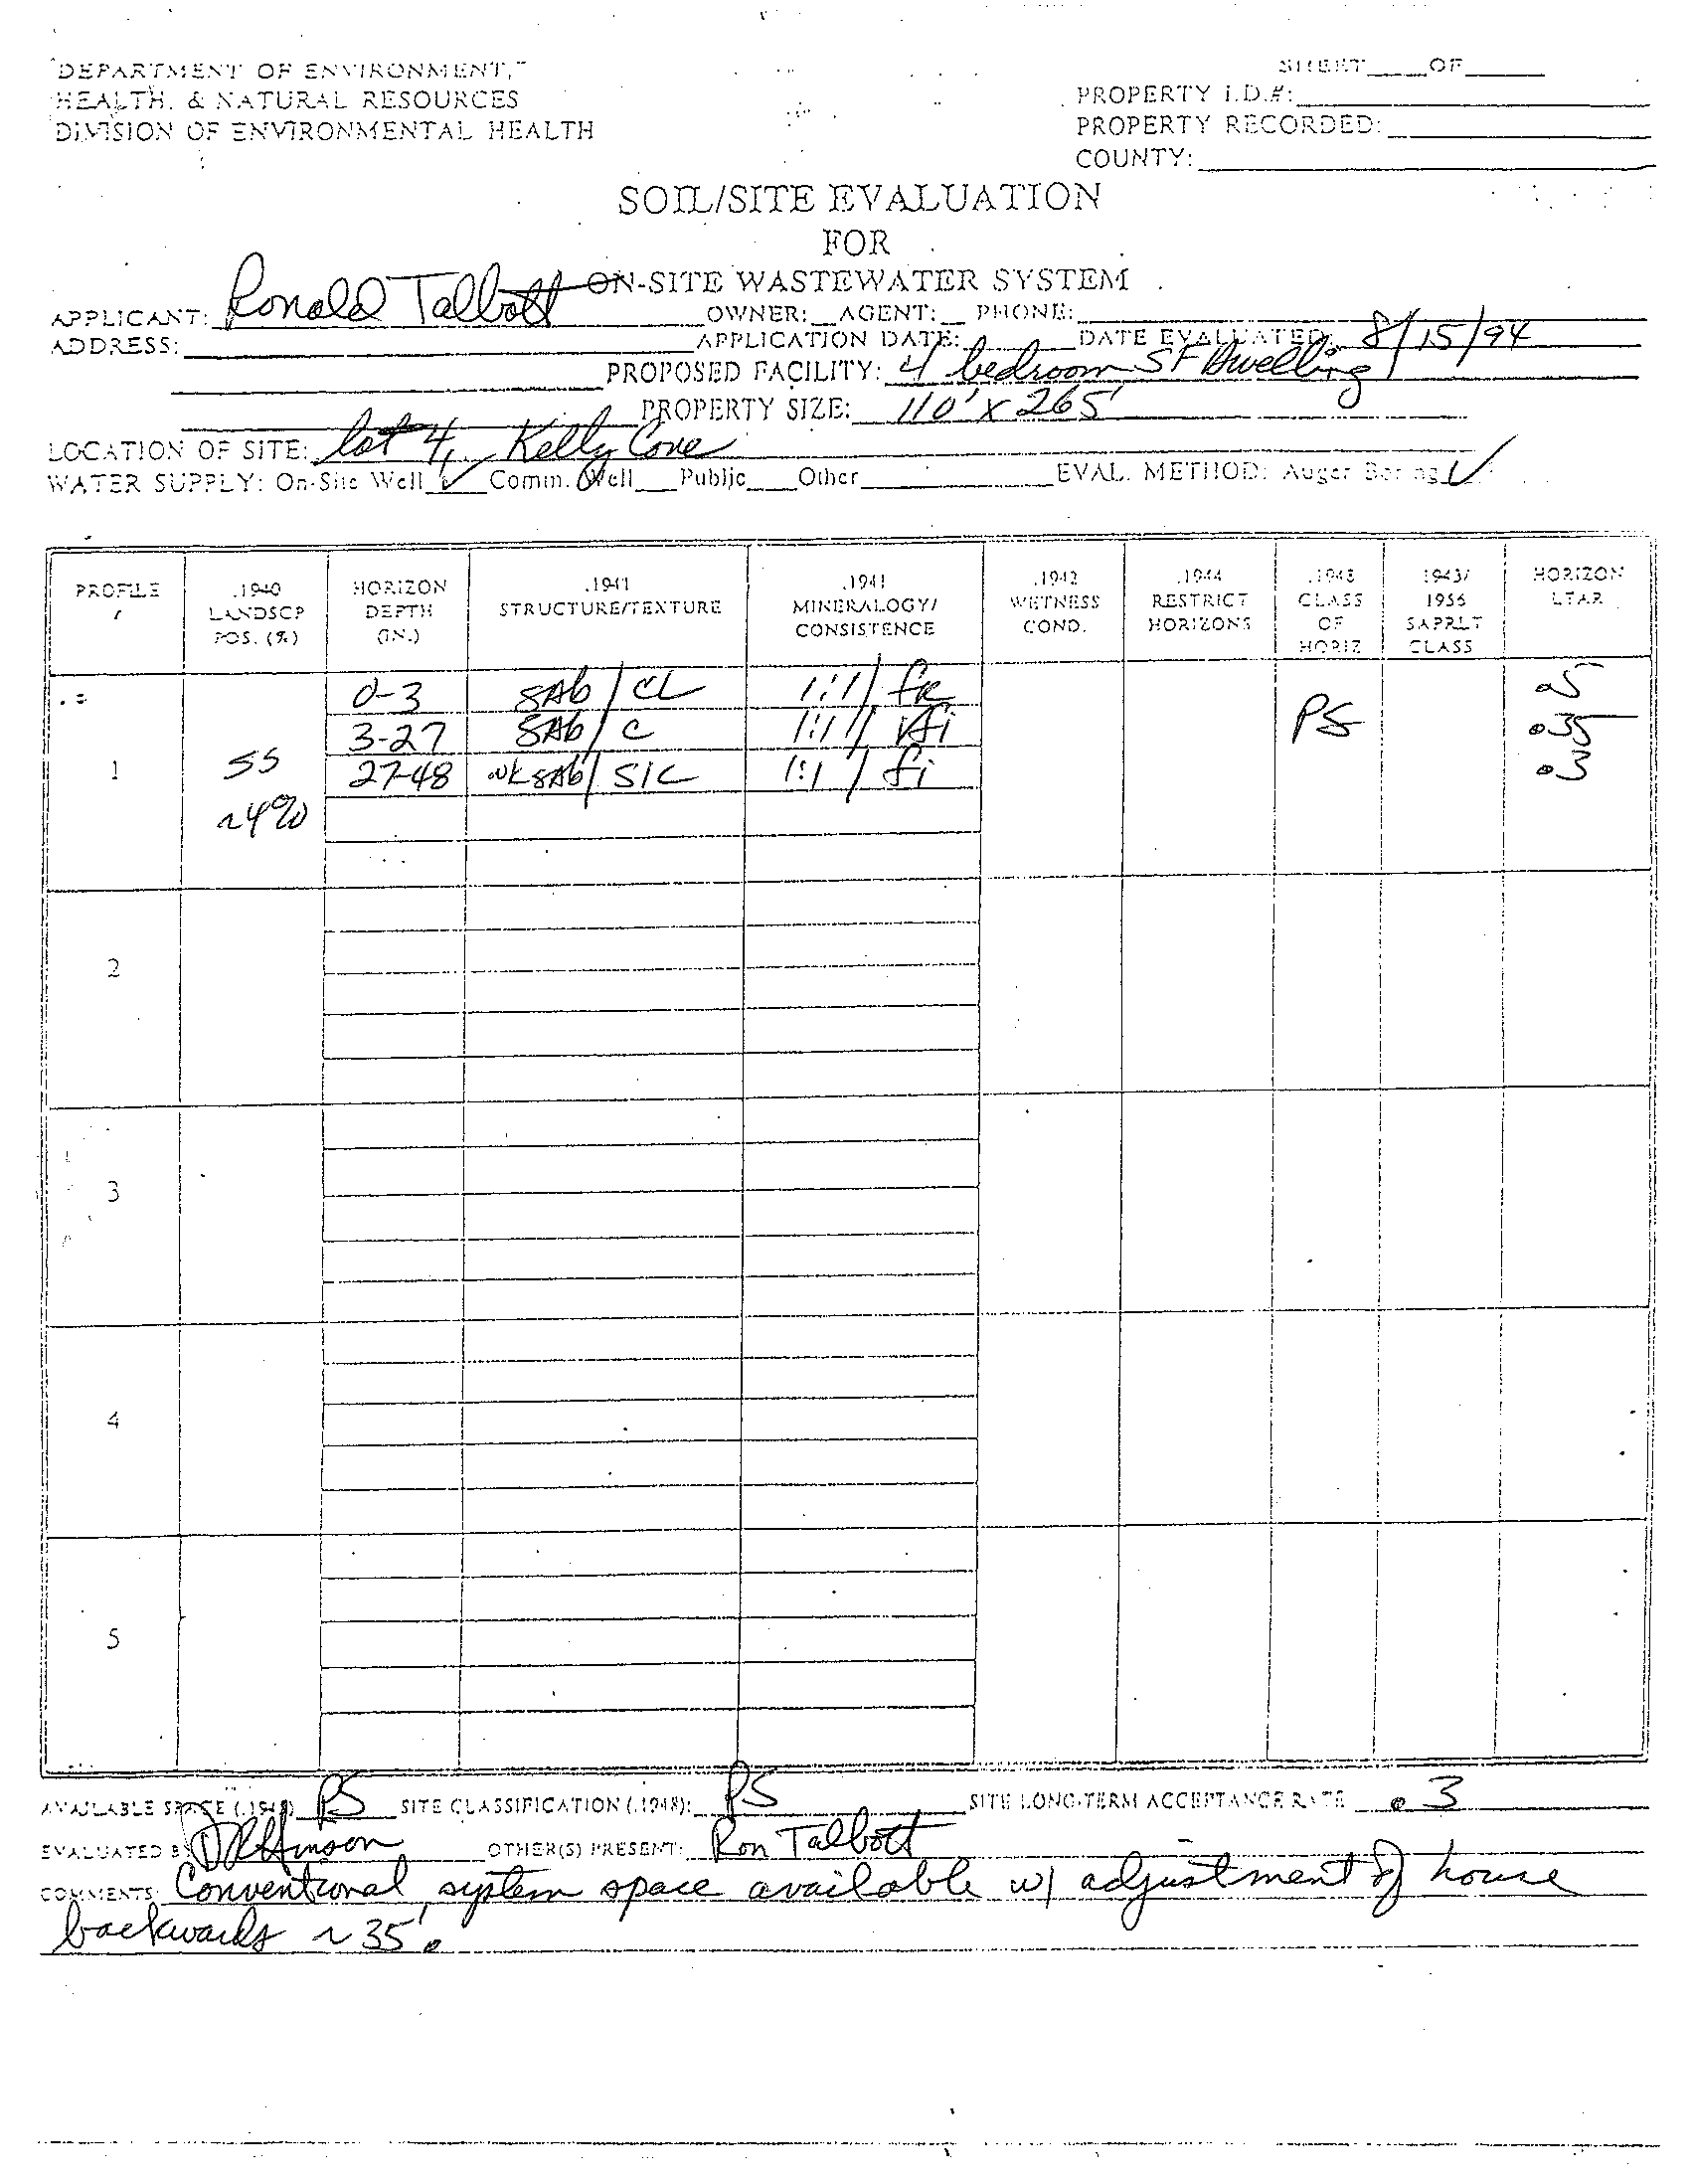 DEPARTMENT OF ENVIRONMENT,
HEALTH, & NATURAL RESOURCES
DIVISION OF ENVIRONMENTAL HEALTH
SHEET____OF____
PROPERTY I.D.#:
PROPERTY RECORDED:
COUNTY:
SOIL/SITE EVALUATION
FOR
ON-SITE WASTEWATER SYSTEM
APPLICANT: Ronald Talbott OWNER:__AGENT:__ PHONE:
ADDRESS: APPLICATION DATE: DATE EVALUATED: 8/15/94
PROPOSED FACILITY: 4 bedroom SF Dwelling
PROPERTY SIZE: 110' x 265'
LOCATION OF SITE: lot 4, Kelly Cove
WATER SUPPLY: On-Site Well ✓ Comm. Well___Public___Other EVAL. METHOD: Auger Boring ✓
PROFILE # .1940 LANDSCP POS. (%) HORIZON DEPTH (IN.) .1941 STRUCTURE/TEXTURE .1941 MINERALOGY/ CONSISTENCE .1942 WETNESS COND. .1944 RESTRICT HORIZONS .1948 CLASS OF HORIZ 1943/ 1956 SAPRLT CLASS HORIZON LTAR
0-3 SAb/CL 1:1/fr .5
3-27 SAb/C 1:1/Vfi PS .35
1 SS 27-48 wk SAb/SIC 1:1/fi .3
~4%
2
3
4
5
AVAILABLE SPACE (.1945) PS SITE CLASSIFICATION (.1948): PS SITE LONG-TERM ACCEPTANCE RATE .3
EVALUATED BY OTHER(S) PRESENT: Ron Talbott
COMMENTS: Conventional system space available w/ adjustment of house
backwards ~35'.